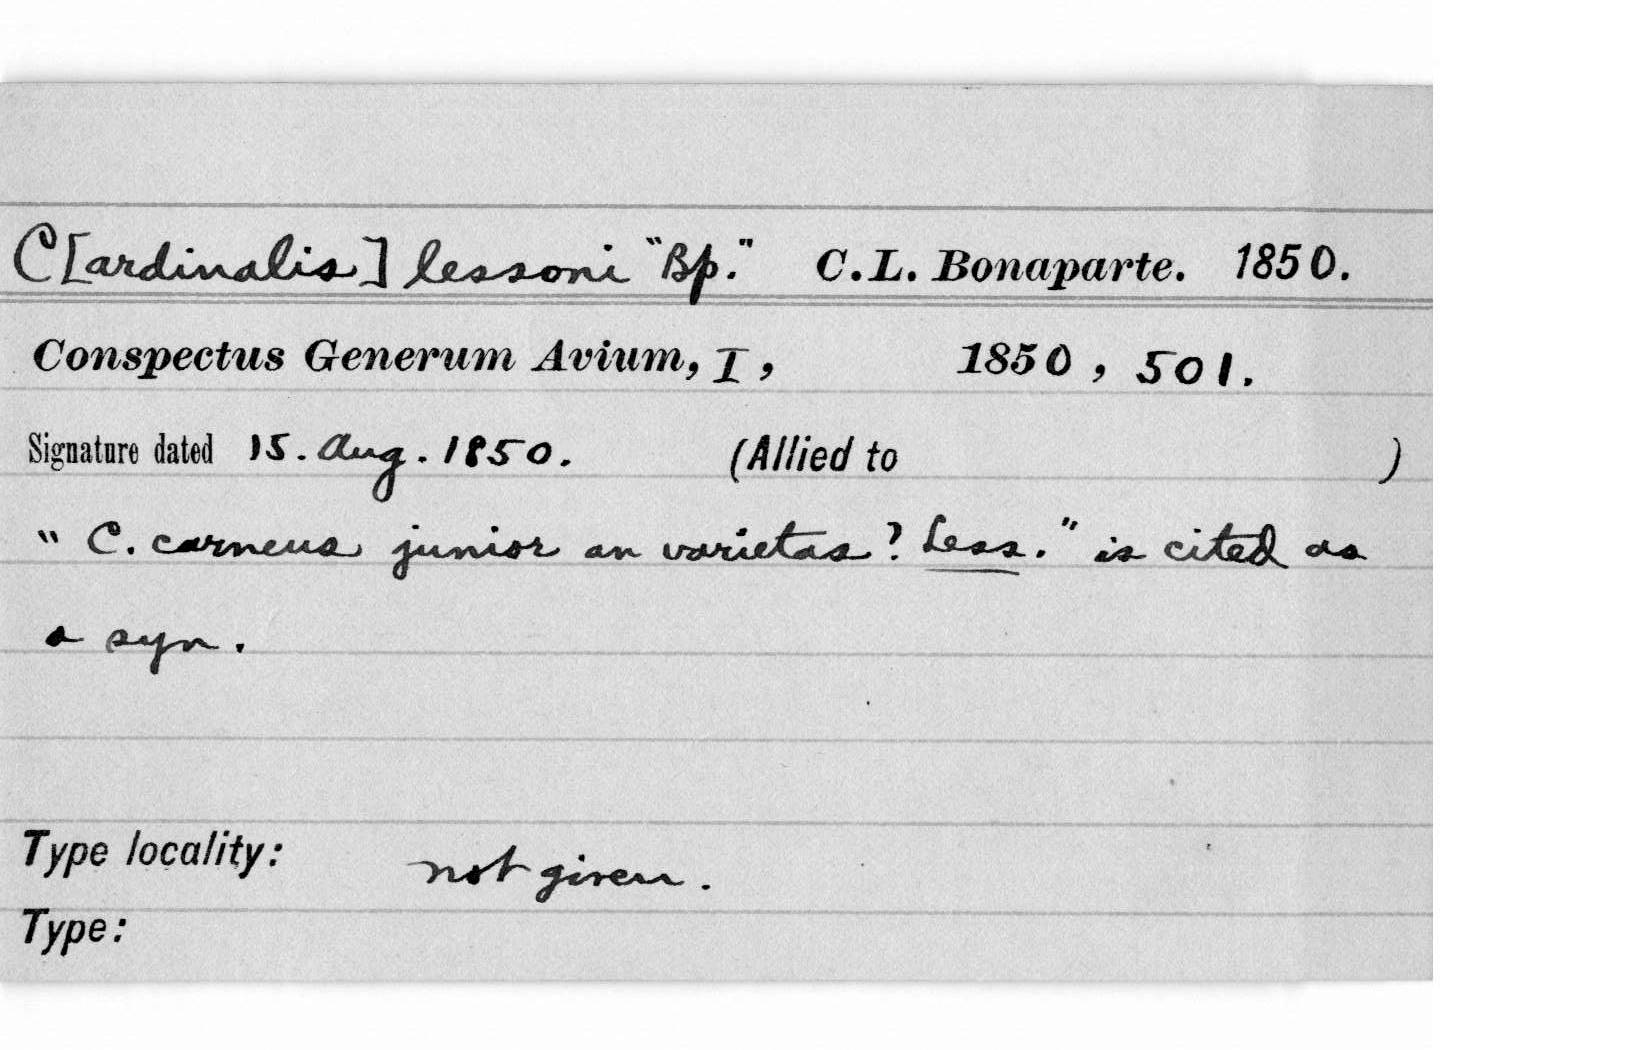 C[ardinalis] lessoni "Bp." C.L. Bonaparte. 1850.
Conspectus Generum Avium, I, 1850, 501.
Signature dated 15. Aug. 1850. (Allied to )
"C. carneus junior an varietas? Less." is cited as
a syn.
Type locality: not given.
Type: